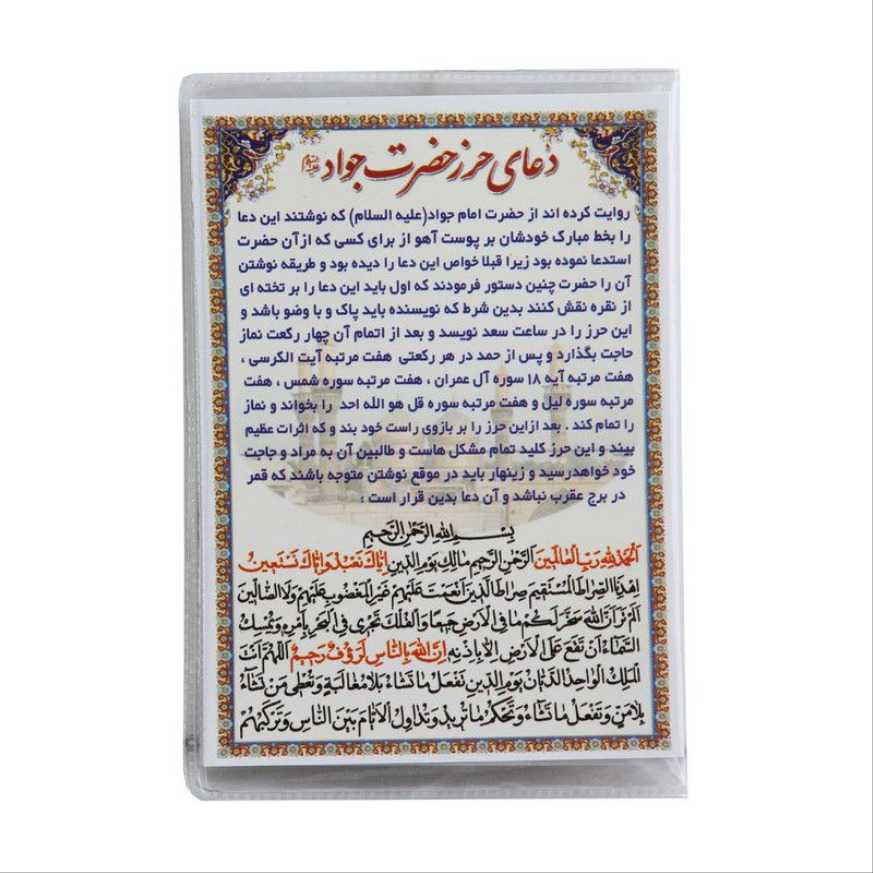 دعای حرز حضرت جواد
روایت کرده اند از حضرت امام جواد(علیه السلام) که نوشتند این دعا
را بخط مبارک خودشان بر پوست آهو از برای کسی که از آن حضرت
استدعا نموده بود زیرا قبلا خواص این دعا را دیده بود و طریقه نوشتن
آن را حضرت چنین دستور فرمودند که اول باید این دعا را بر تخته ای
از نقره نقش کنند بدین شرط که نویسنده باید پاک و با وضو باشد و
این حرز را در ساعت سعد نویسد و بعد از اتمام آن چهار رکعت نماز
حاجت بگذارد و پس از حمد در هر رکعتی هفت مرتبه آیت الکرسی ،
هفت مرتبه آیه ۱۸ سوره آل عمران ، هفت مرتبه سوره شمس ، هفت
مرتبه سوره لیل و هفت مرتبه سوره قل هو الله احد را بخواند و نماز
را تمام کند . بعد ازاین حرز را بر بازوی راست خود بند و که اثرات عظیم
بیند و این حرز کلید تمام مشکل هاست و طالبین آن به مراد و حاجت
خود خواهدرسید و زینهار باید در موقع نوشتن متوجه باشند که قمر
در برج عقرب نباشد و آن دعا بدین قرار است :
بِسْمِ اللهِ الرَّحْمٰنِ الرَّحِيمِ
اَلْحَمْدُ لِلّٰهِ رَبِّ الْعَالَمِينَ اَلرَّحْمٰنِ الرَّحِيمِ مَالِكِ يَوْمِ الدِّينِ اِيَّاكَ نَعْبُدُ وَاِيَّاكَ نَسْتَعِينُ
اِهْدِنَا الصِّرَاطَ الْمُسْتَقِيمَ صِرَاطَ الَّذِينَ اَنْعَمْتَ عَلَيْهِمْ غَيْرِ الْمَغْضُوبِ عَلَيْهِمْ وَلَا الضَّالِّينَ
اَلَمْ تَرَ اَنَّ اللهَ سَخَّرَ لَكُمْ مَا فِي الْاَرْضِ جَمِيعًا وَالْفُلْكَ تَجْرِي فِي الْبَحْرِ بِاَمْرِهِ وَيُمْسِكُ
السَّمَاءَ اَنْ تَقَعَ عَلَى الْاَرْضِ اِلَّا بِاِذْنِهِ اِنَّ اللهَ بِالنَّاسِ لَرَؤُفٌ رَحِيمٌ اَللّٰهُمَّ اَنْتَ
الْمَلِكُ الْوَاحِدُ الدَّيَّانُ يَوْمِ الدِّينِ تَفْعَلُ مَا تَشَاءُ بِلَا مُغَالَبَةٍ وَتُعْطِي مَنْ تَشَاءُ
بِلَا مَنٍّ وَتَفْعَلُ مَا تَشَاءُ وَتَحْكُمُ مَا تُرِيدُ وَتُدَاوِلُ الْاَيَّامَ بَيْنَ النَّاسِ وَتُرَكِّبُهُمْ